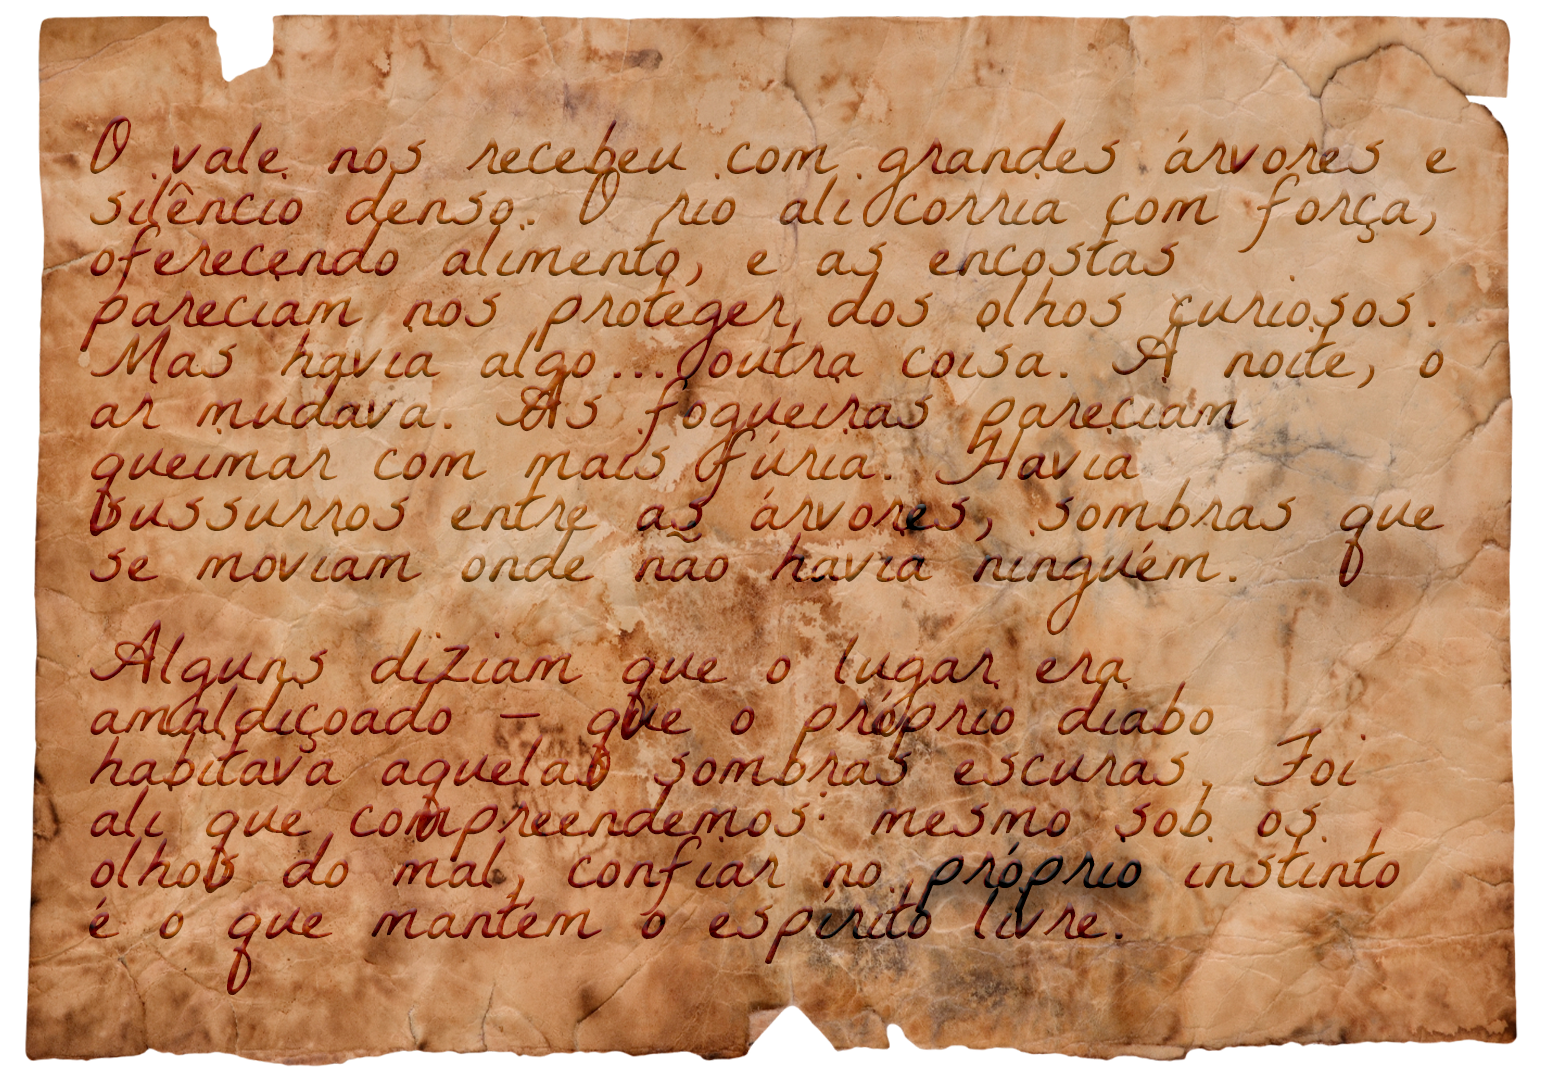 O vale nos recebeu com grandes árvores e
silêncio denso. O rio ali corria com força,
oferecendo alimento, e as encostas
pareciam nos proteger dos olhos curiosos.
Mas havia algo... outra coisa. À noite, o
ar mudava. As fogueiras pareciam
queimar com mais fúria. Havia
sussurros entre as árvores, sombras que
se moviam onde não havia ninguém.
Alguns diziam que o lugar era
amaldiçoado — que o próprio diabo
habitava aquelas sombras escuras. Foi
ali que compreendemos: mesmo sob os
olhos do mal, confiar no próprio instinto
é o que mantém o espírito livre.